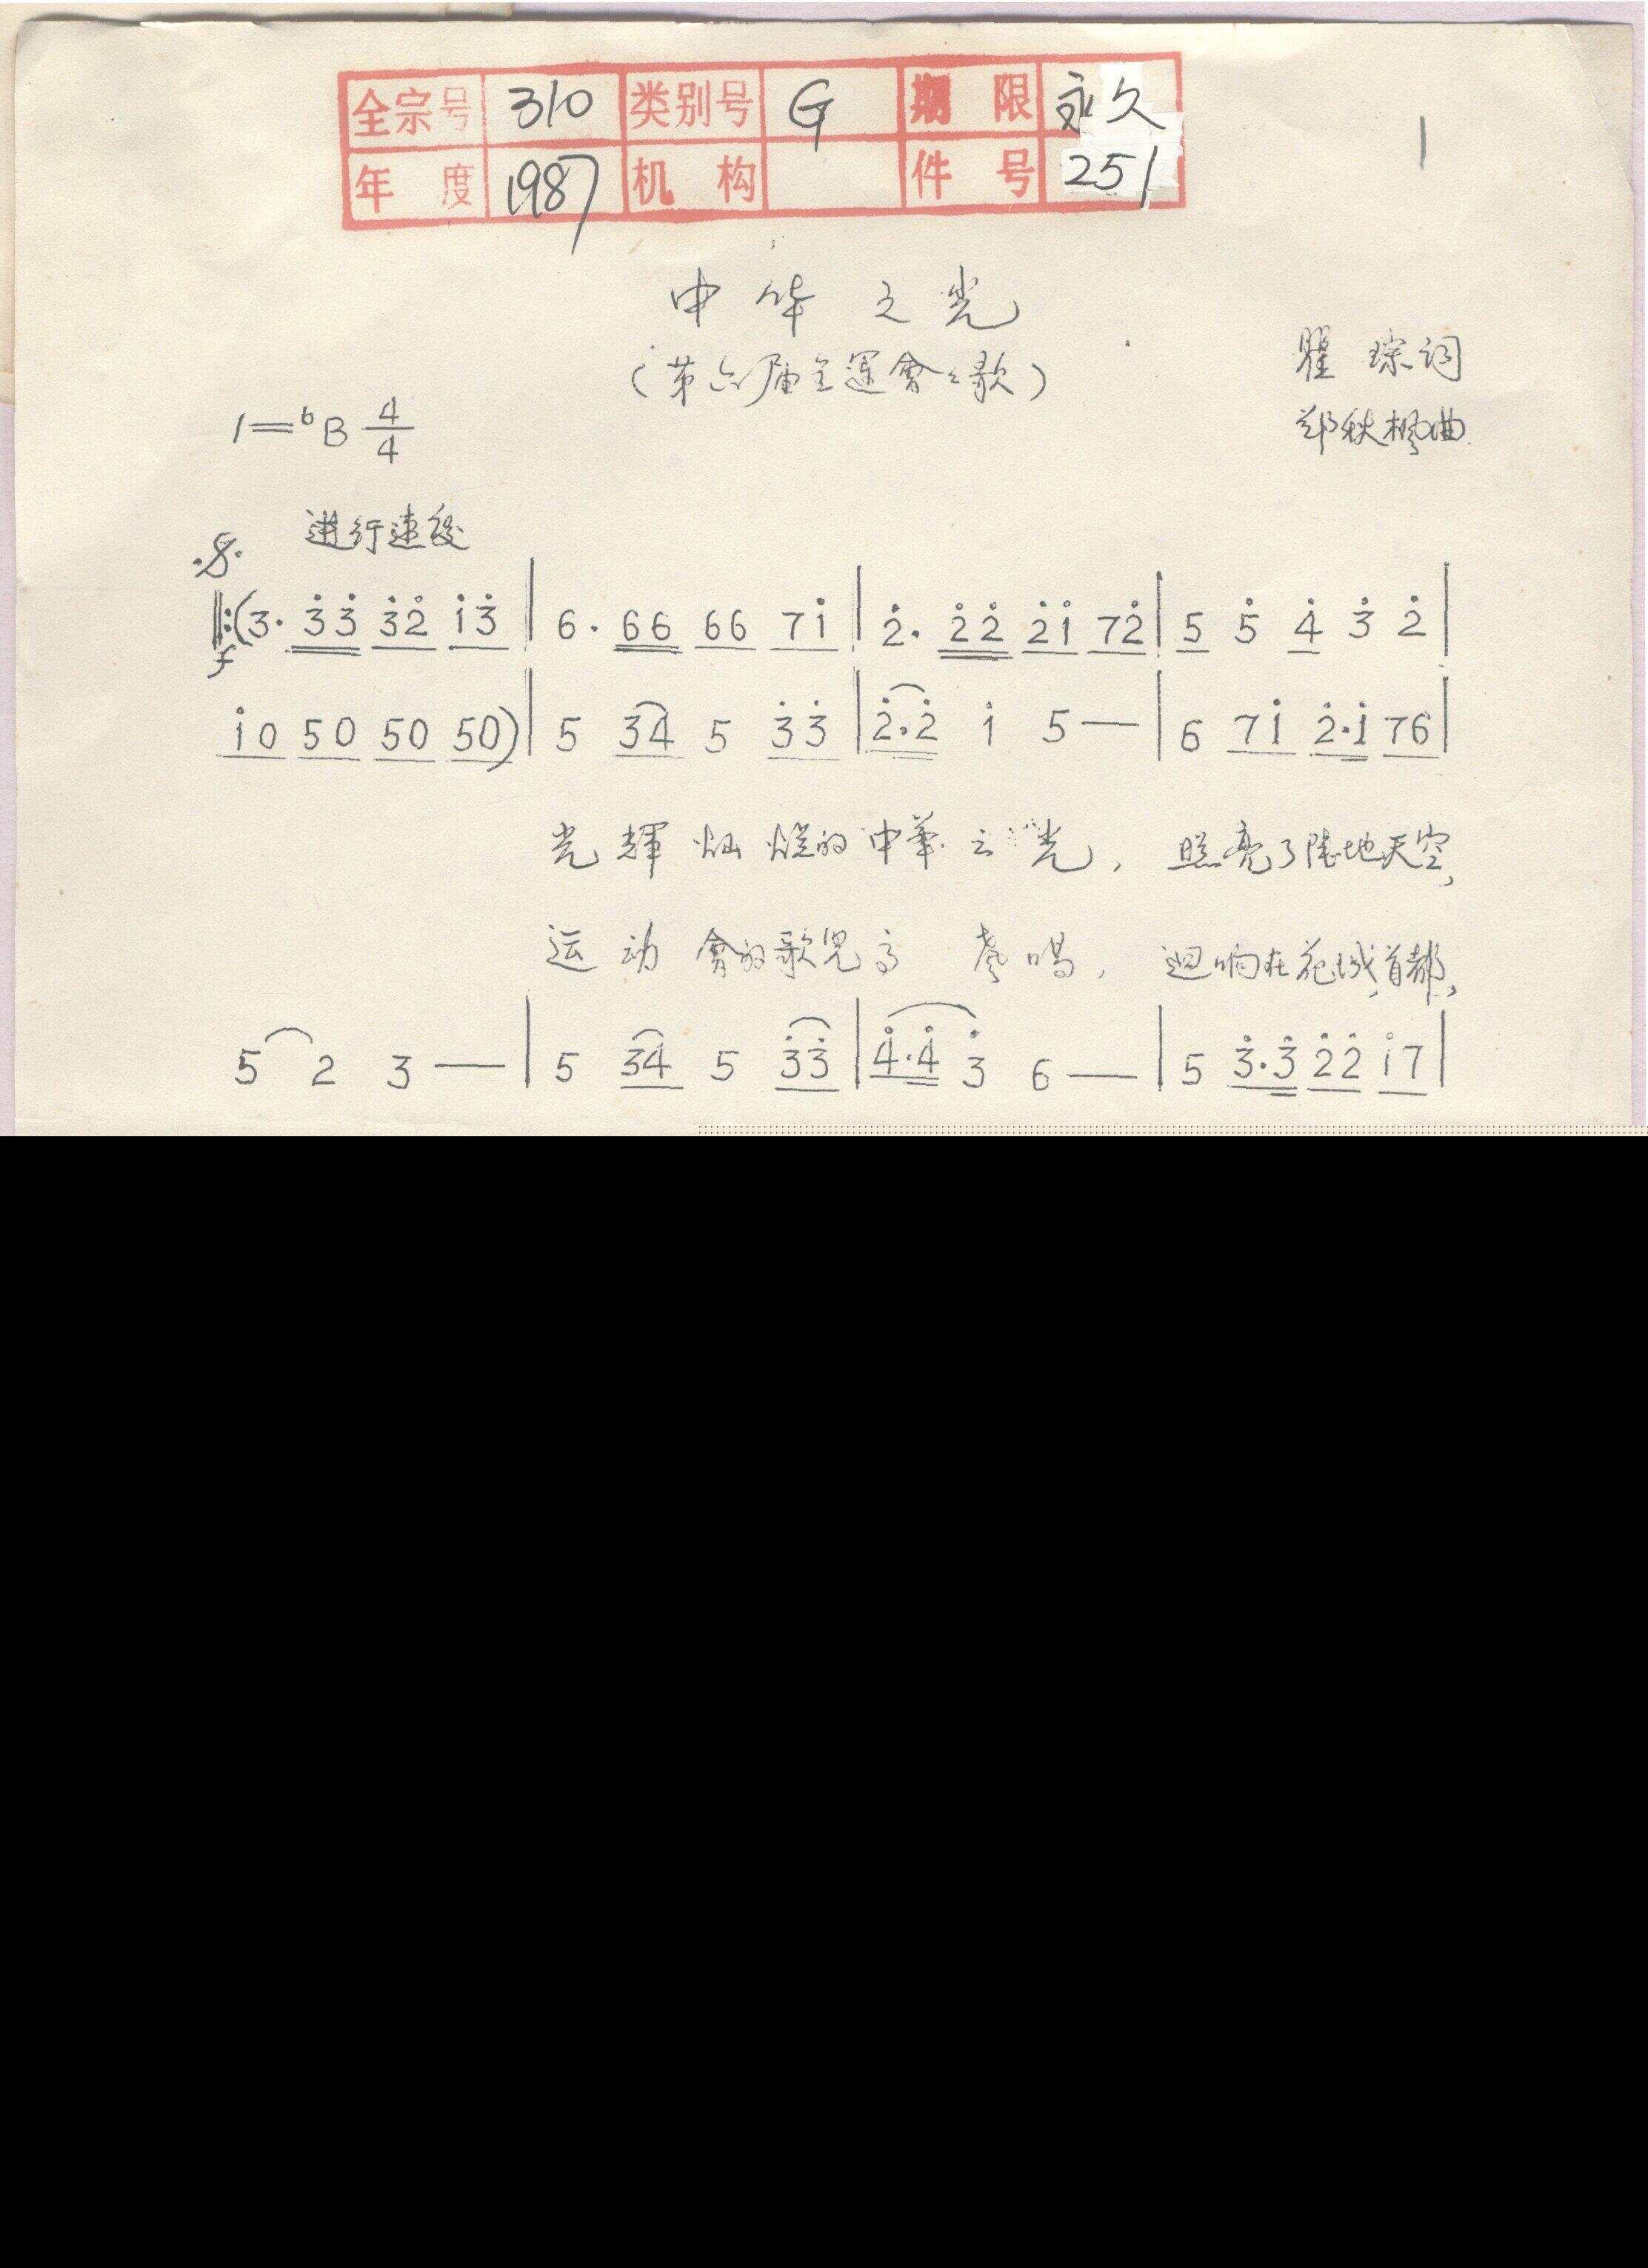 全宗号 310 类别号 G 期限 永久
年度 1987 机构 件号 251
1
中华之光
(第六届全運會之歌)
瞿琮词
1=♭B 4/4
郑秋枫曲
进行速度
𝄋
‖:(3· 3̇3̇ 3̇2̇ i3̇ | 6· 66 66 7i | 2̇· 2̇2̇ 2̇i 72̇ | 5 5̇ 4̇ 3̇ 2̇ |
f
i0 50 50 50) | 5 34 5 3̇3̇ | 2̇·2̇ i 5 — | 6 7i 2̇·i 76 |
光輝灿烂的中華之光, 照亮了陆地天空,
运动會的歌儿高声唱, 迴响在花城首都,
5 2 3 — | 5 34 5 3̇3̇ | 4̇·4̇ 3̇ 6 — | 5 3̇·3̇ 2̇2̇ i7 |